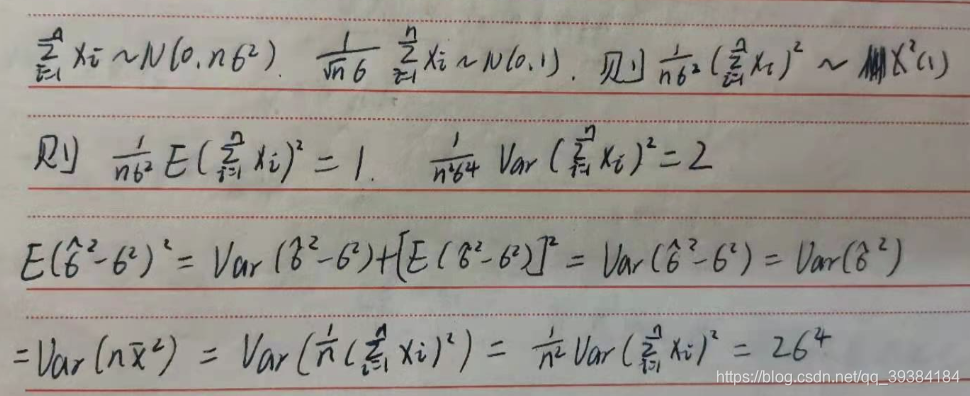 $\sum_{i=1}^{n} x_i \sim N(0, n6^2)$. $\frac{1}{\sqrt{n}6} \sum_{i=1}^{n} x_i \sim N(0,1)$. 则 $\frac{1}{n6^2} (\sum_{i=1}^{n} x_i)^2 \sim X^2(1)$
则 $\frac{1}{n6^2} E(\sum_{i=1}^{n} x_i)^2 = 1$. $\frac{1}{n^2 6^4} Var(\sum_{i=1}^{n} x_i)^2 = 2$
$E(\hat{6}^2 - 6^2)^2 = Var(\hat{6}^2 - 6^2) + [E(\hat{6}^2 - 6^2)]^2 = Var(\hat{6}^2 - 6^2) = Var(\hat{6}^2)$
$= Var(n\bar{x}^2) = Var(\frac{1}{n}(\sum_{i=1}^{n} x_i)^2) = \frac{1}{n^2} Var(\sum_{i=1}^{n} x_i)^2 = 26^4$
https://blog.csdn.net/qq_39384184